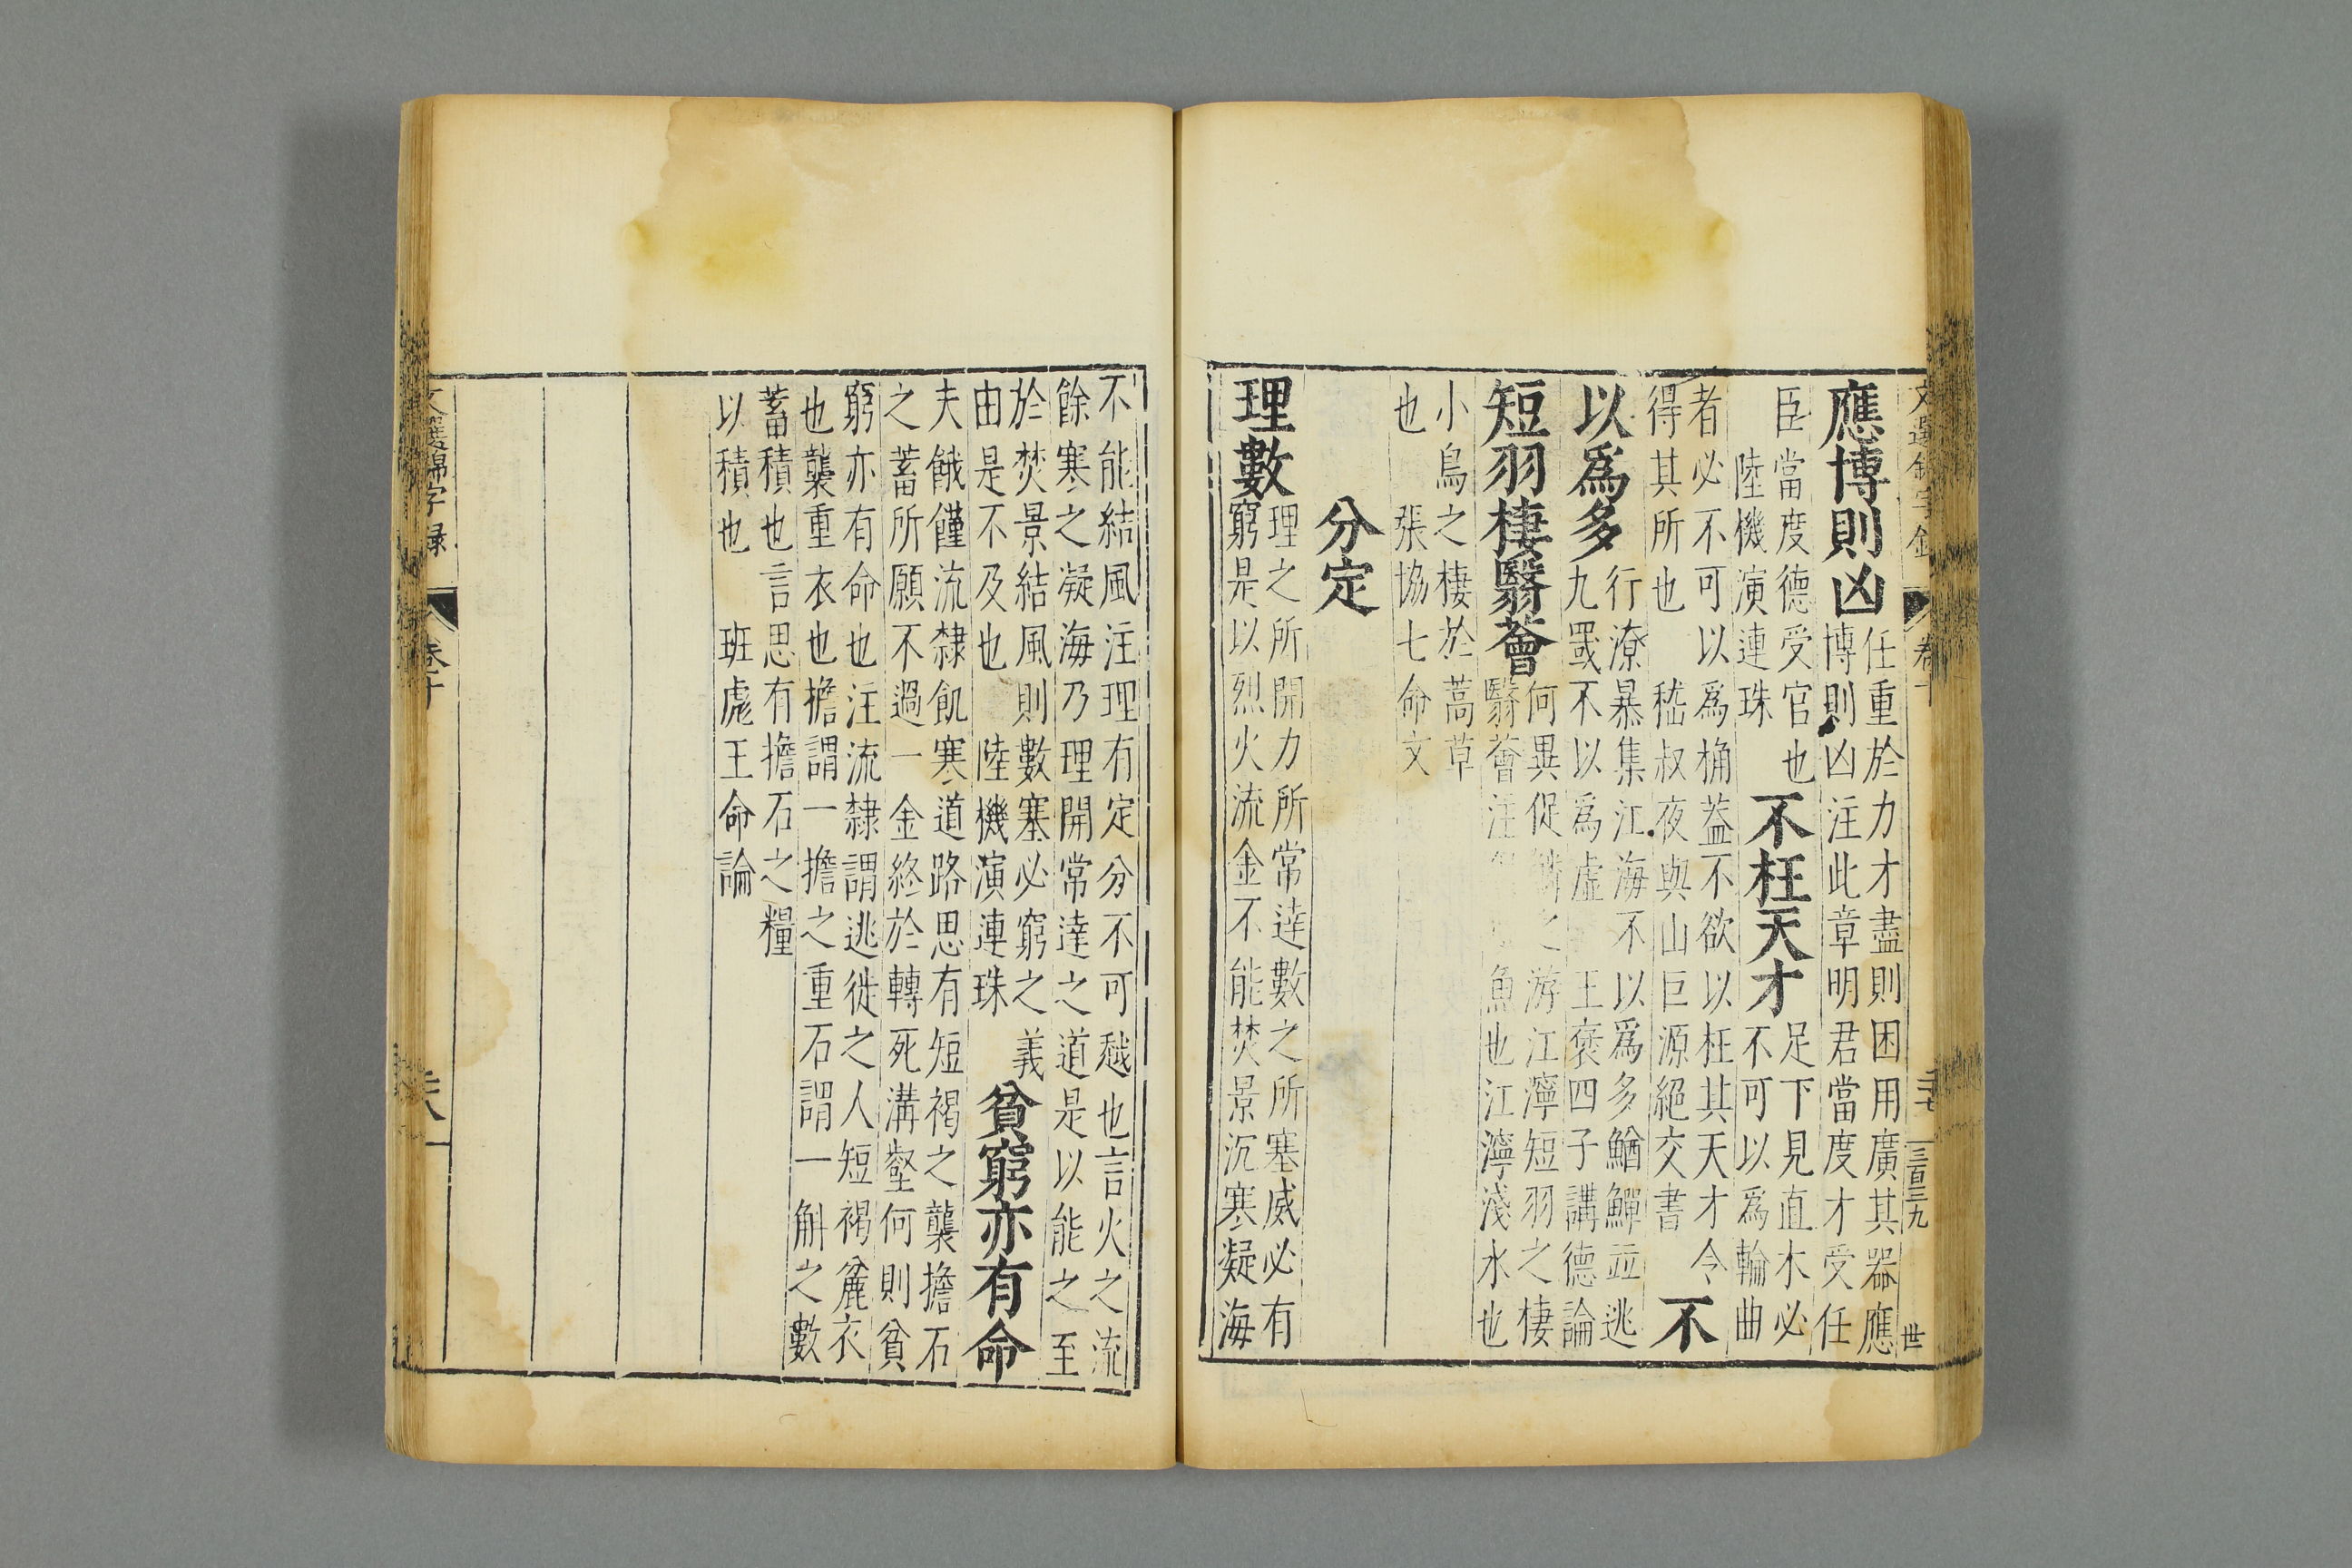 應博則凶
任重於力才盡則困用廣其器應
博則凶注此章明君當度才受任
臣當度德受官也
陸機演連珠
不枉天才
足下見直木必
不可以為輪曲
者必不可以為桷蓋不欲以枉其天才令
得其所也 嵇叔夜與山巨源絕交書
不
以為多
行潦暴集江海不以為多鰌鱓並逃
九罭不以為虛 王褒四子講德論
短羽棲翳薈
何異促鱗之游江濘短羽之棲
翳薈注 魚也江濘淺水也
小鳥之棲於蒿草
也 張協七命文
分定
理數
理之所開力所常達數之所塞威必有
窮是以烈火流金不能焚景沉寒凝海
不能結風注理有定分不可越也言火之流
餘寒之凝海乃理開常達之道是以能之至
於焚景結風則數塞必窮之義
由是不及也 陸機演連珠
貧窮亦有命
夫餓饉流隸飢寒道路思有短褐之襲擔石
之蓄所願不過一金終於轉死溝壑何則貧
窮亦有命也注流隸謂逃徙之人短褐麄衣
也襲重衣也擔謂一擔之重石謂一斛之數
蓄積也言思有擔石之糧
以積也 班彪王命論
文選錦字錄
卷十
三百二九
世